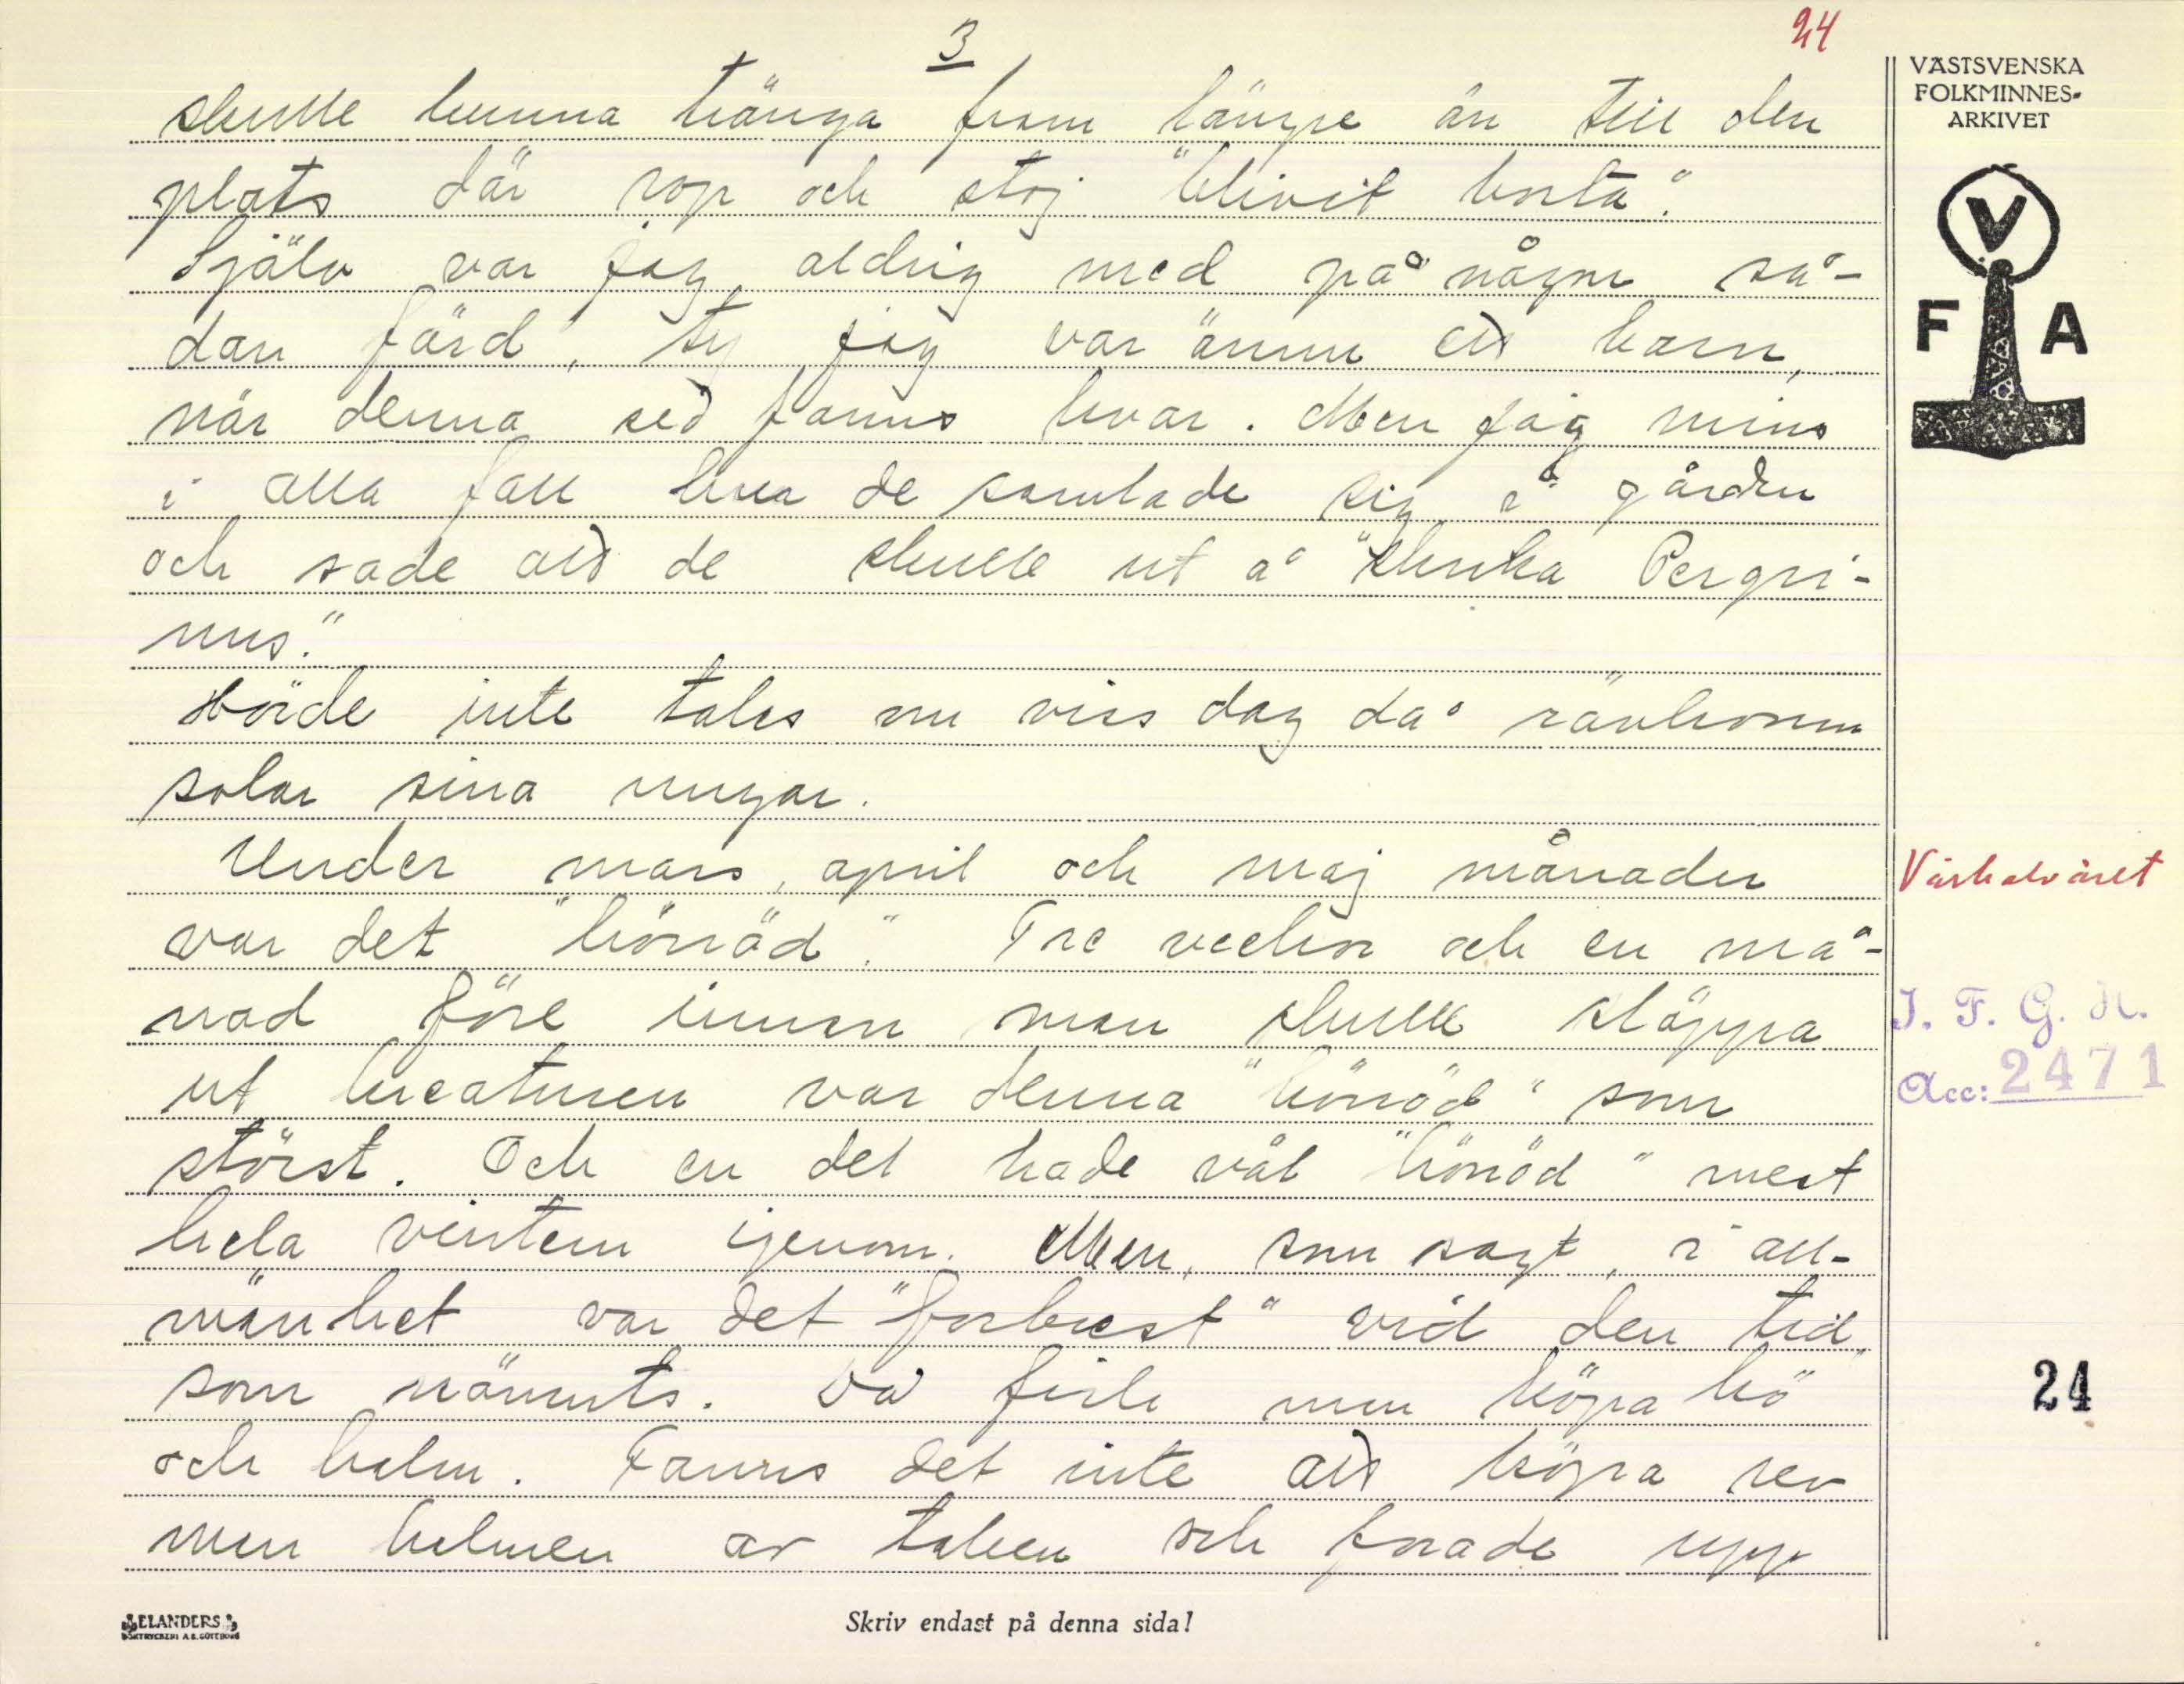 3
24
skulle kunna tränga fram längre än till den
plats där rop och stoj "blivit borta".
Själv var jag aldrig med på någon så-
dan färd, ty jag var ännu ett barn,
när denna sed fanns kvar. Men jag mins
i alla fall hur de samlade sig å gården
och sade att de skulle ut å "skrika Pergri-
nus."
Hörde inte talas om viss dag då rävhonan
solar sina ungar.
Under mars, april och maj månader
var det "hönöd". Tre veckor och en må-
nad före innan man skulle släppa
ut kreaturen var denna "hönöd" som
störst. Och en del hade väl "hönöd" mest
hela vintern igenom. Men, som sagt, i all-
mänhet var det "forbrest" vid den tid,
som nämnts. Då fick man köpa hö
och halm. Fanns det inte att köpa rev
man halmen av taken och forade upp
VÄSTSVENSKA
FOLKMINNES-
ARKIVET
V
F A
Vårhalvåret
I. F. G. H.
Acc: 2471
24
ELANDERS
BOKTRYCKERI A.B. GÖTEBORG
Skriv endast på denna sida!